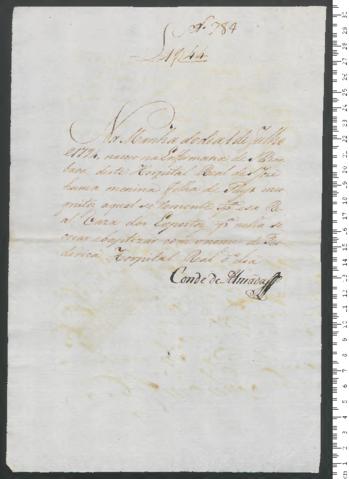 Nº 784
L 1944
Na Manhã do dia 1 de Julho
1794. nasceo na Enfermaria de
bara deste Hospital Real de S. Jozé
huma menina filha de Pays inco
gnitos aqual se remete pª essa Re
al Caza dos Expostos, pª nella se
criar ebaptizar com o nome de
derica, Hospital Real dia
Conde de Almada